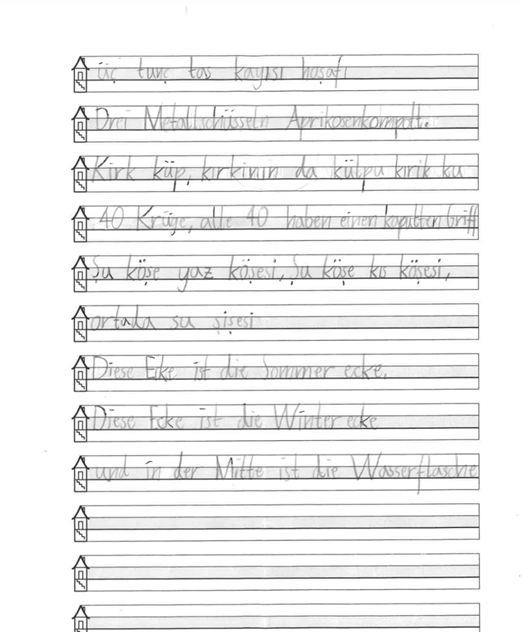 üç tunç tas kayısı hoşafı
Drei Metallschüsseln Aprikosenkompott.
Kırk küp, kırkının da kulpu kırık ku
40 Krüge, alle 40 haben einen kaputten Griff
Şu köşe yaz köşesi, Şu köşe kıs köşesi,
ortada su şişesi
Diese Eke ist die Sommer ecke.
Diese Ecke ist die Winter ecke
und in der Mitte ist die Wasserflasche